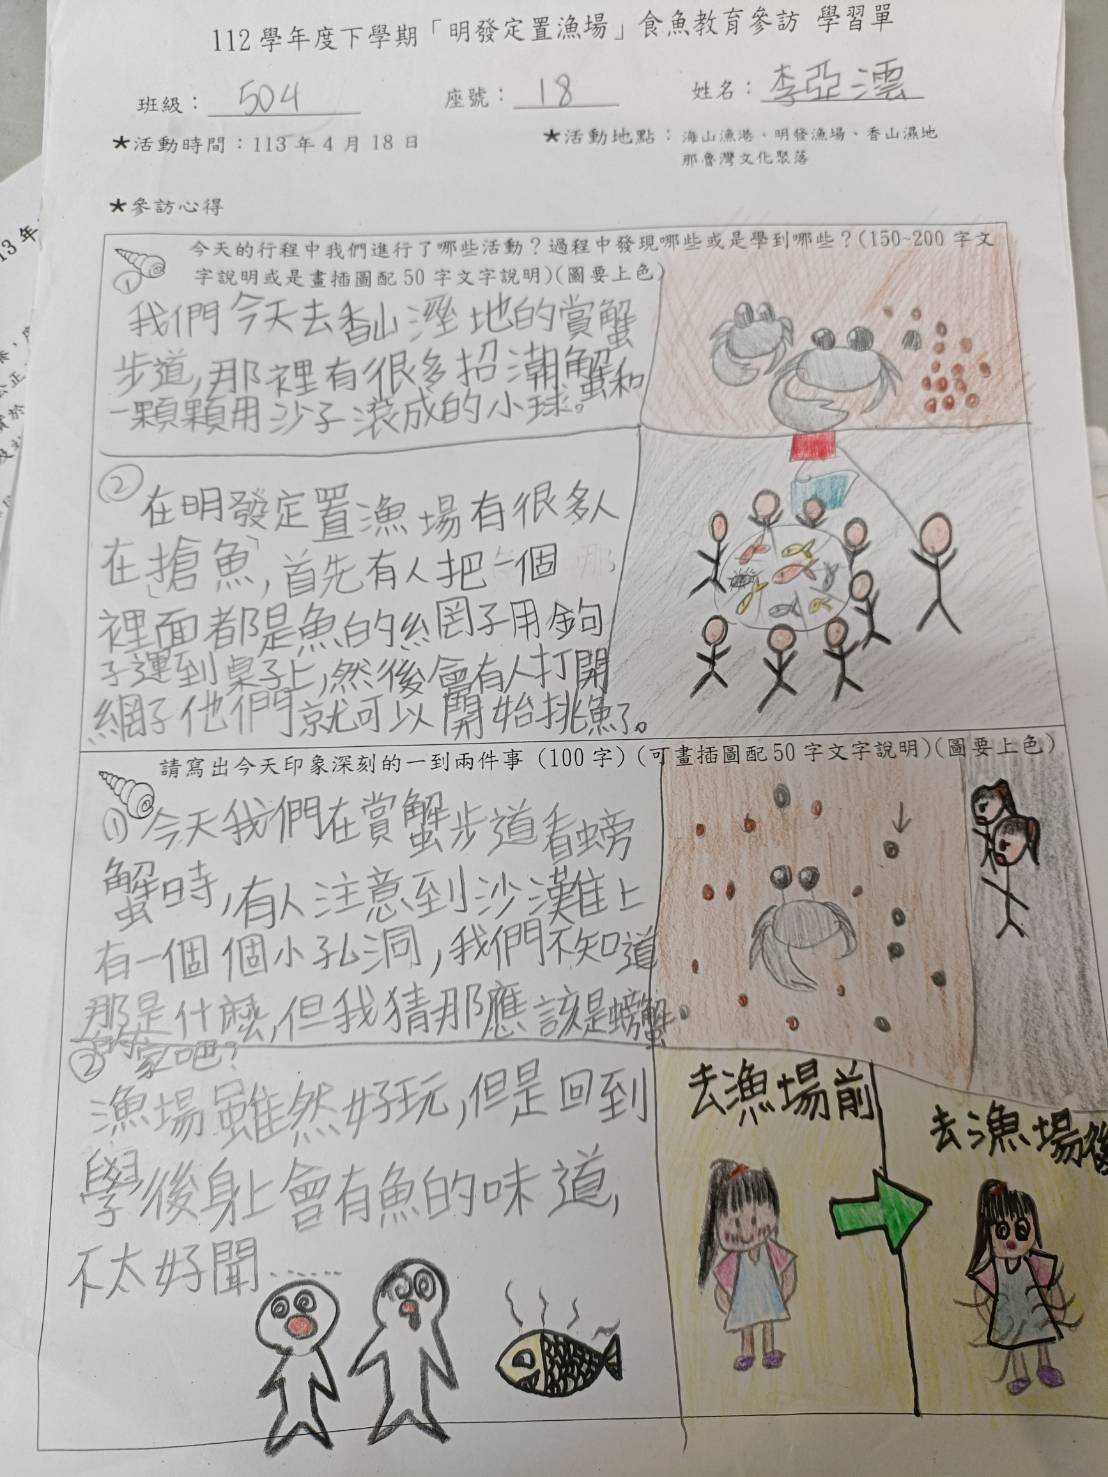 112學年度下學期「明發定置漁場」食魚教育參訪 學習單
班級：504 座號：18 姓名：李亞澐
★活動時間：113年4月18日 ★活動地點：海山漁港、明發漁場、香山濕地
那魯灣文化聚落
★參訪心得
今天的行程中我們進行了哪些活動？過程中發現哪些或是學到哪些？(150~200字文
字說明或是畫插圖配50字文字說明)(圖要上色)
①
我們今天去香山溼地的賞蟹
步道,那裡有很多招潮蟹和
一顆顆用沙子滾成的小球。
②在明發定置漁場有很多人
在「搶魚」,首先有人把一個
裡面都是魚的網子用鉤
子運到桌子上,然後會有人打開
網子他們就可以開始挑魚了。
請寫出今天印象深刻的一到兩件事 (100字)(可畫插圖配50字文字說明)(圖要上色)
①今天我們在賞蟹步道看螃
蟹時,有人注意到沙灘上
有一個個小孔洞,我們不知道
那是什麼,但我猜那應該是螃蟹
的家吧?
②
漁場雖然好玩,但是回到
學後身上會有魚的味道,
不太好聞……
去漁場前
去漁場後